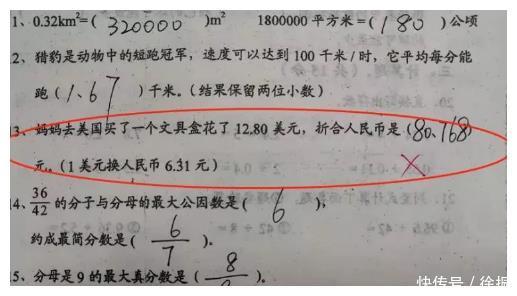 1、0.32km²=( 320000 )m² 1800000平方米=( 180 )公顷
2、猎豹是动物中的短跑冠军，速度可以达到100千米/时，它平均每分能
跑( 1、67 )千米。(结果保留两位小数)
3、妈妈去美国买了一个文具盒花了12.80美元，折合人民币是(80、768)
元。(1美元换人民币6.31元)
14、36/42的分子与分母的最大公因数是( 6 )，
约成最简分数是( 6/7 )。
15、分母是9的最大真分数是( 8
快传号/徐振